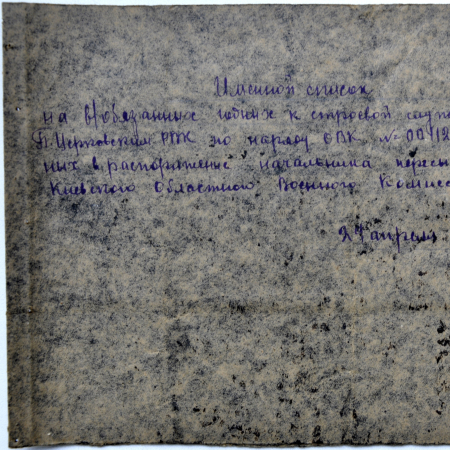 Именной список
на в/обязанных годных к строевой служ
Б. Церковским РВК по наряду ОВК № 00/12
ных в распоряжение начальника пересы
Киевского Областного Военного Комисс
27 апреля